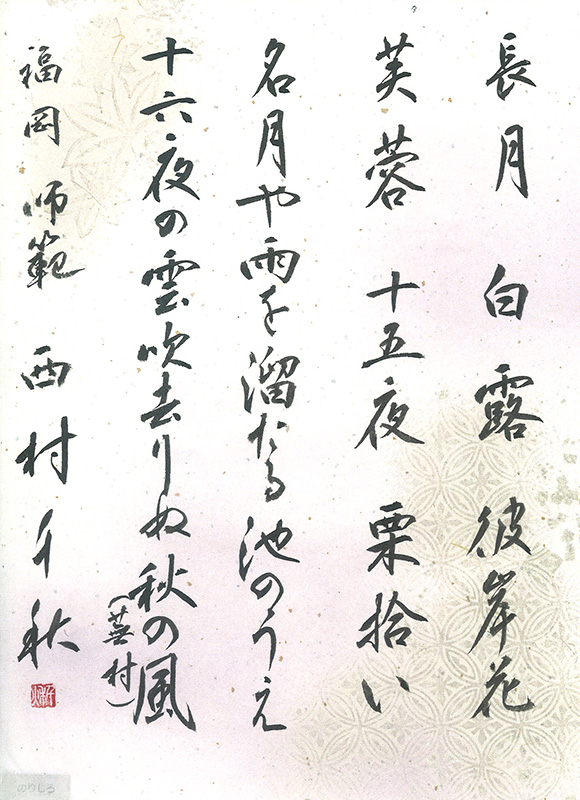 長月 白露 彼岸花
芙蓉 十五夜 栗拾い
名月や雨を溜たる池のうえ
十六夜の雲吹去りぬ秋の風
(蕪村)
福岡 師範 西村千秋
のりしろ